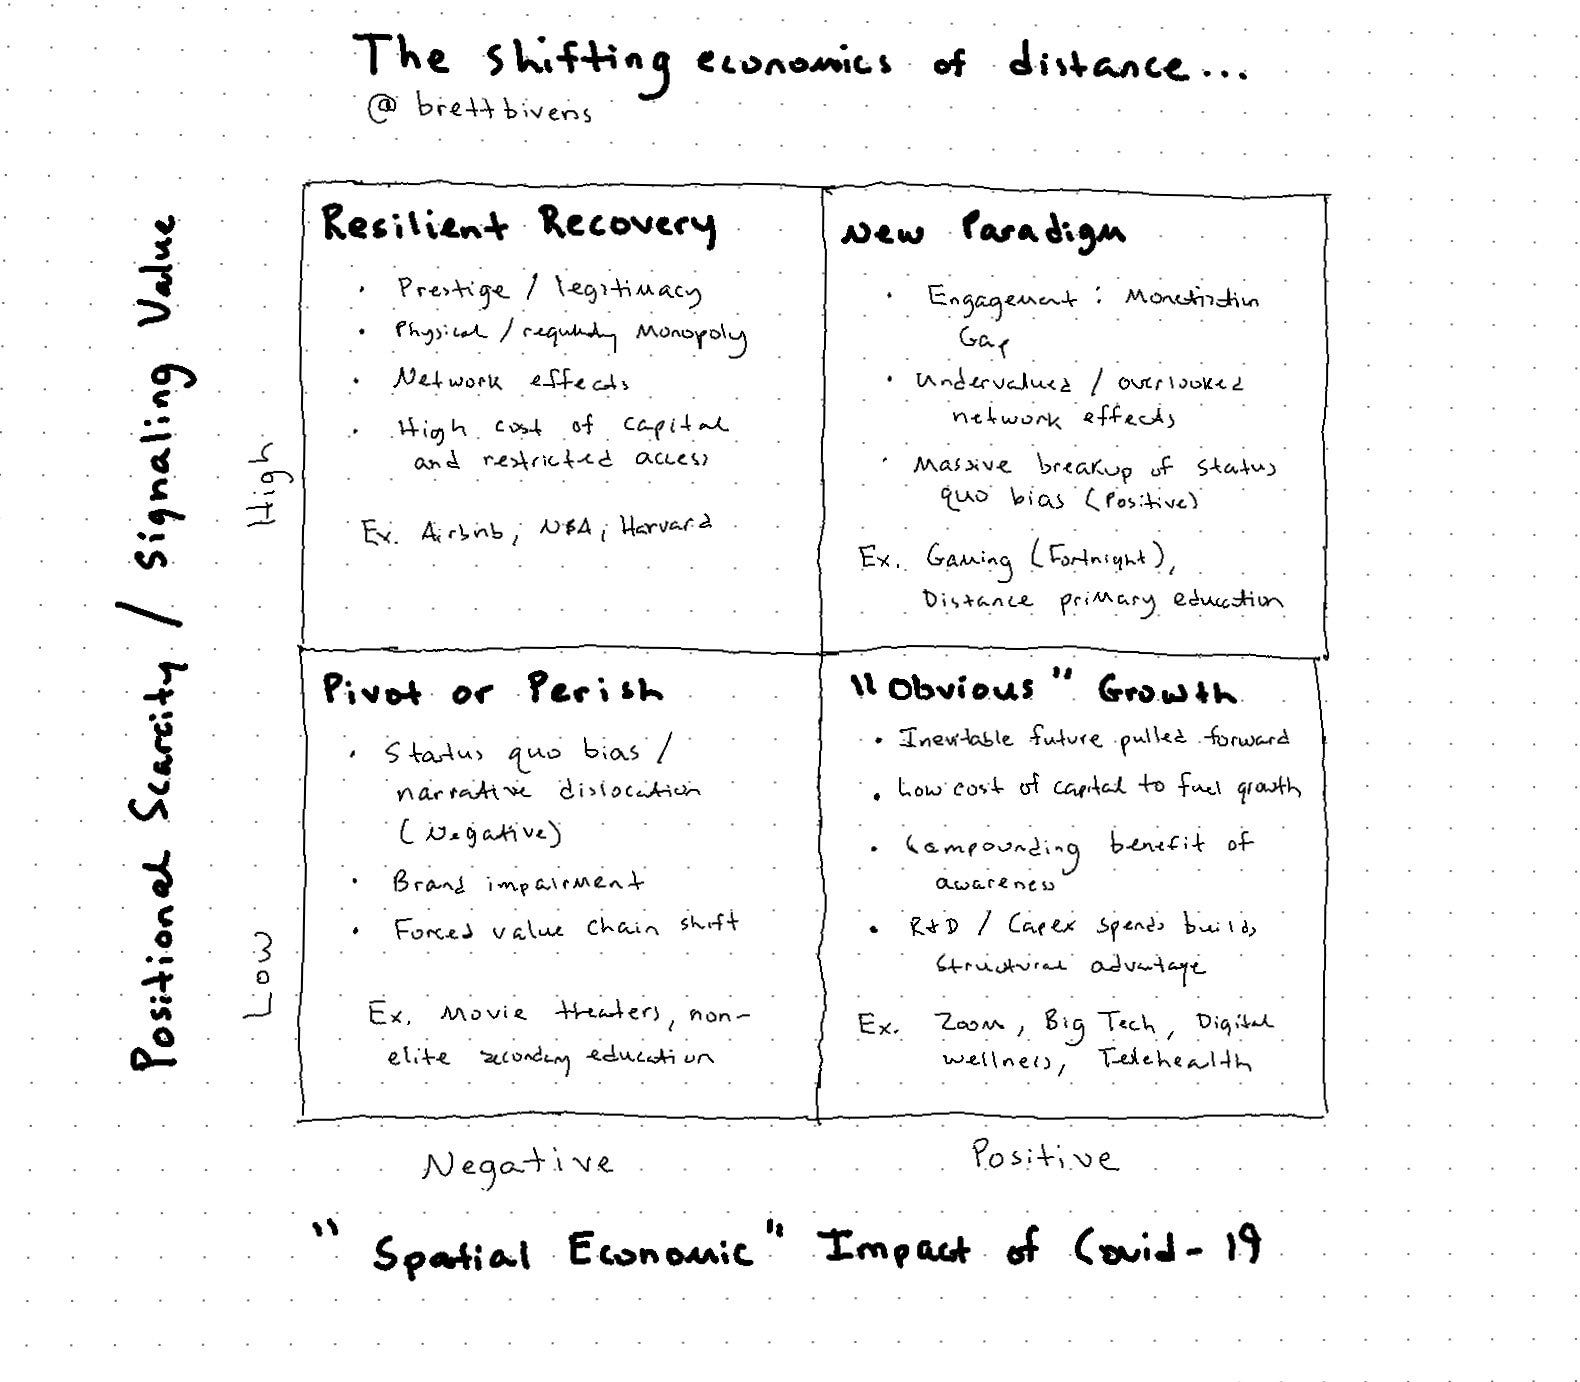 The shifting economics of distance...
@ brettbivens
Positional Scarcity / Signaling Value
High
Low
Resilient Recovery
· Prestige / legitimacy
· Physical / regulatory Monopoly
· Network effects
· High cost of capital
and restricted access
Ex. Airbnb, NBA, Harvard
New Paradigm
· Engagement : Monetization
Gap
· Undervalued / overlooked
network effects
· Massive breakup of status
quo bias (Positive)
Ex. Gaming (Fortnight),
Distance primary education
Pivot or Perish
· Status quo bias /
narrative dislocation
(Negative)
· Brand impairment
· Forced value chain shift
Ex. Movie theaters, non-
elite secondary education
"Obvious" Growth
· Inevitable future pulled forward
· Low cost of capital to fuel growth
· Compounding benefit of
awareness
· R&D / Capex spends builds
structural advantage
Ex. Zoom, Big Tech, Digital
wellness, Telehealth
Negative
Positive
"Spatial Economic" Impact of Covid-19